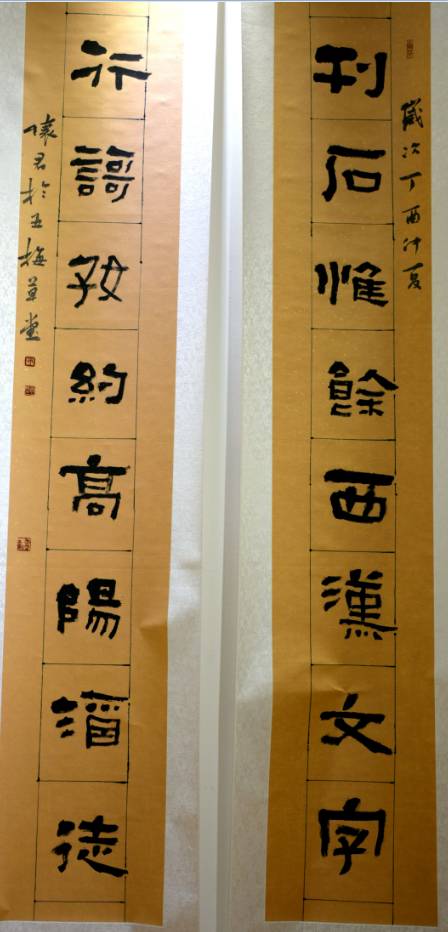 歲次丁酉仲夏
刊石惟餘西漢文字
行謌好約高陽酒徒
君於五梅草堂